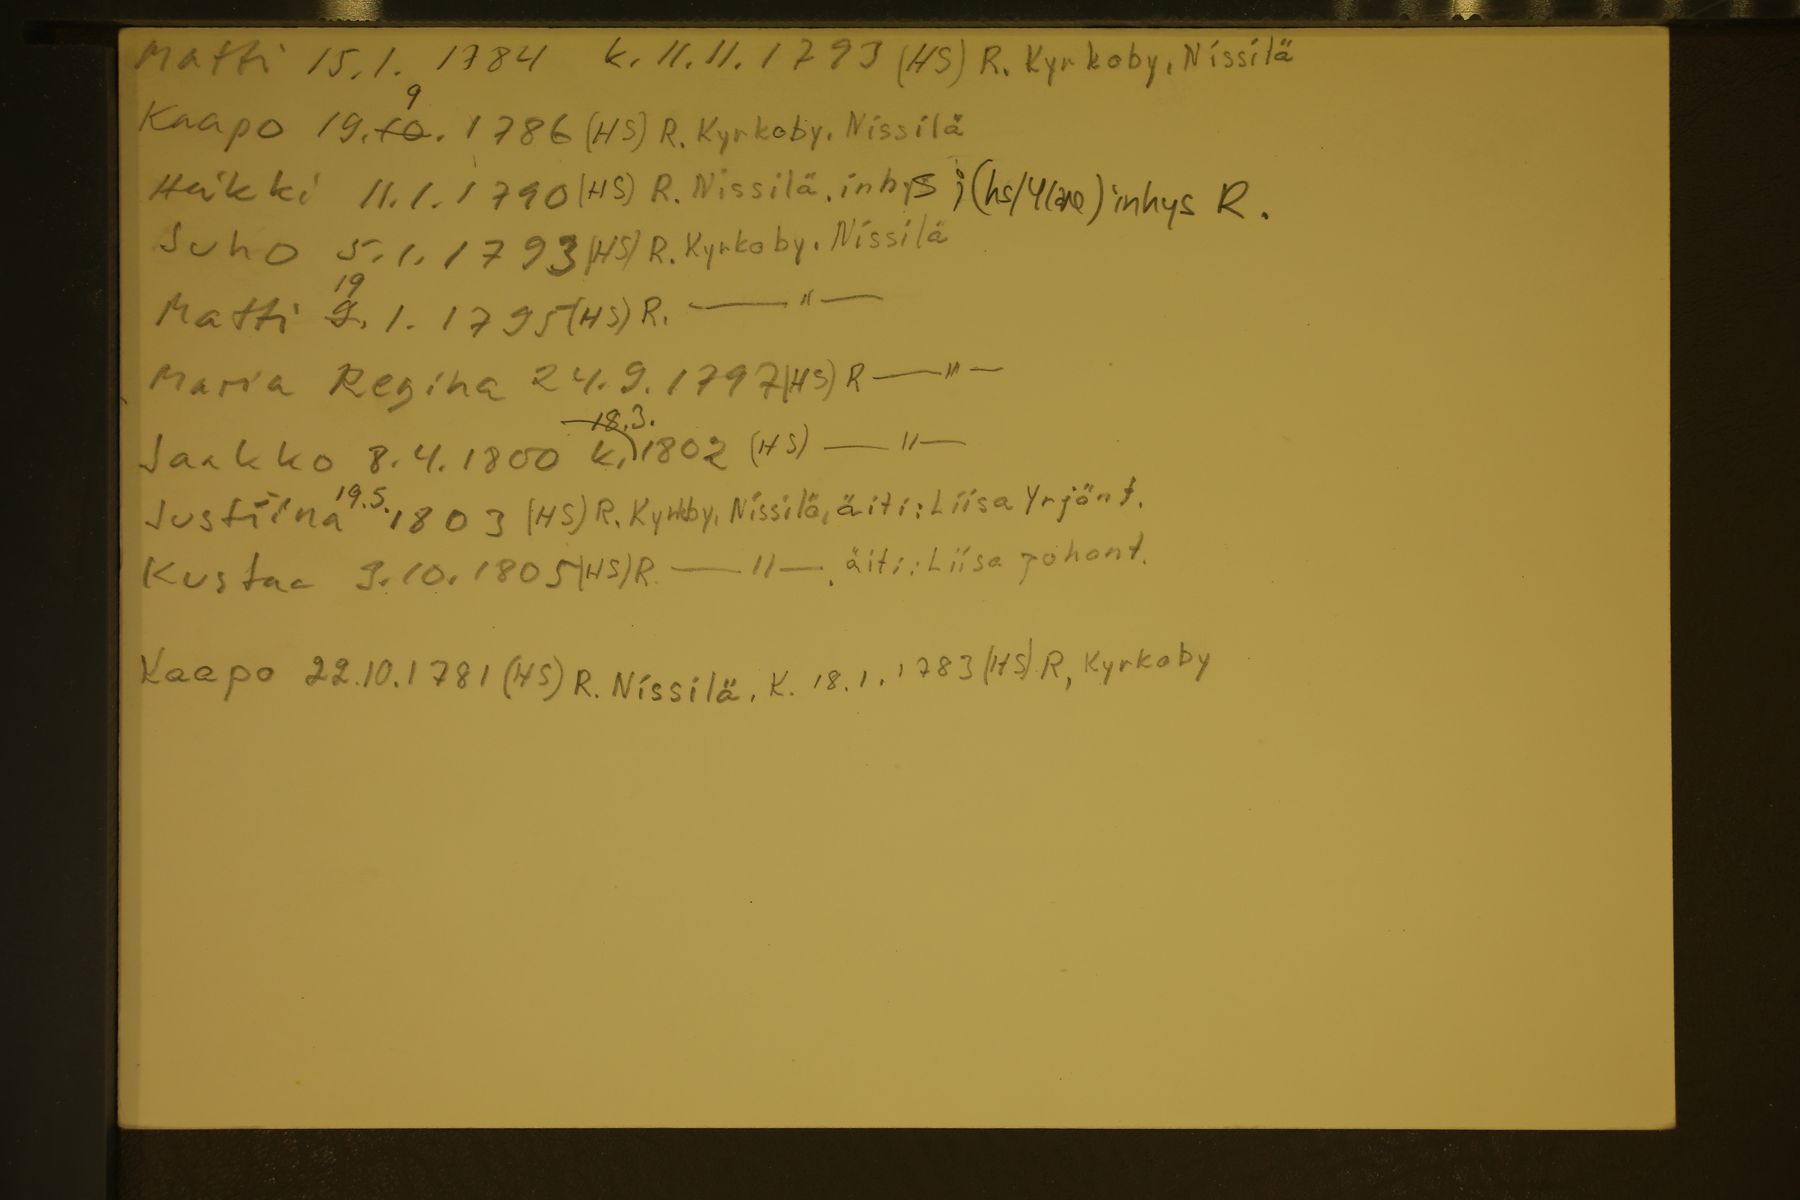 Matti 15.1. 1784 k. 11.11.1793 (HS) R. Kyrkoby, Nissilä
Kaapo 19.10. 9 1786 (HS) R. Kyrkoby. Nissilä
Heikki 11.1.1790 (HS) R. Nissilä, inhys ; (hs/Yläne) inhys R.
Juho 5.1.1793 (HS) R. Kyrkoby. Nissilä
Matti 9. 19 1. 1795 (HS) R. —— " ——
Maria Regina 24.9.1797 (HS) R —— " ——
Jaakko 8.4.1800 k. 18.3. 1802 (HS) —— " ——
Justiina 19.5. 1803 (HS) R. Kyrkby, Nissilä, äiti: Liisa Yrjönt.
Kustaa 9.10.1805 (HS) R —— " ——. äiti: Liisa Johont.
Kaapo 22.10.1781 (HS) R. Nissilä. K. 18.1.1783 (HS) R, Kyrkoby